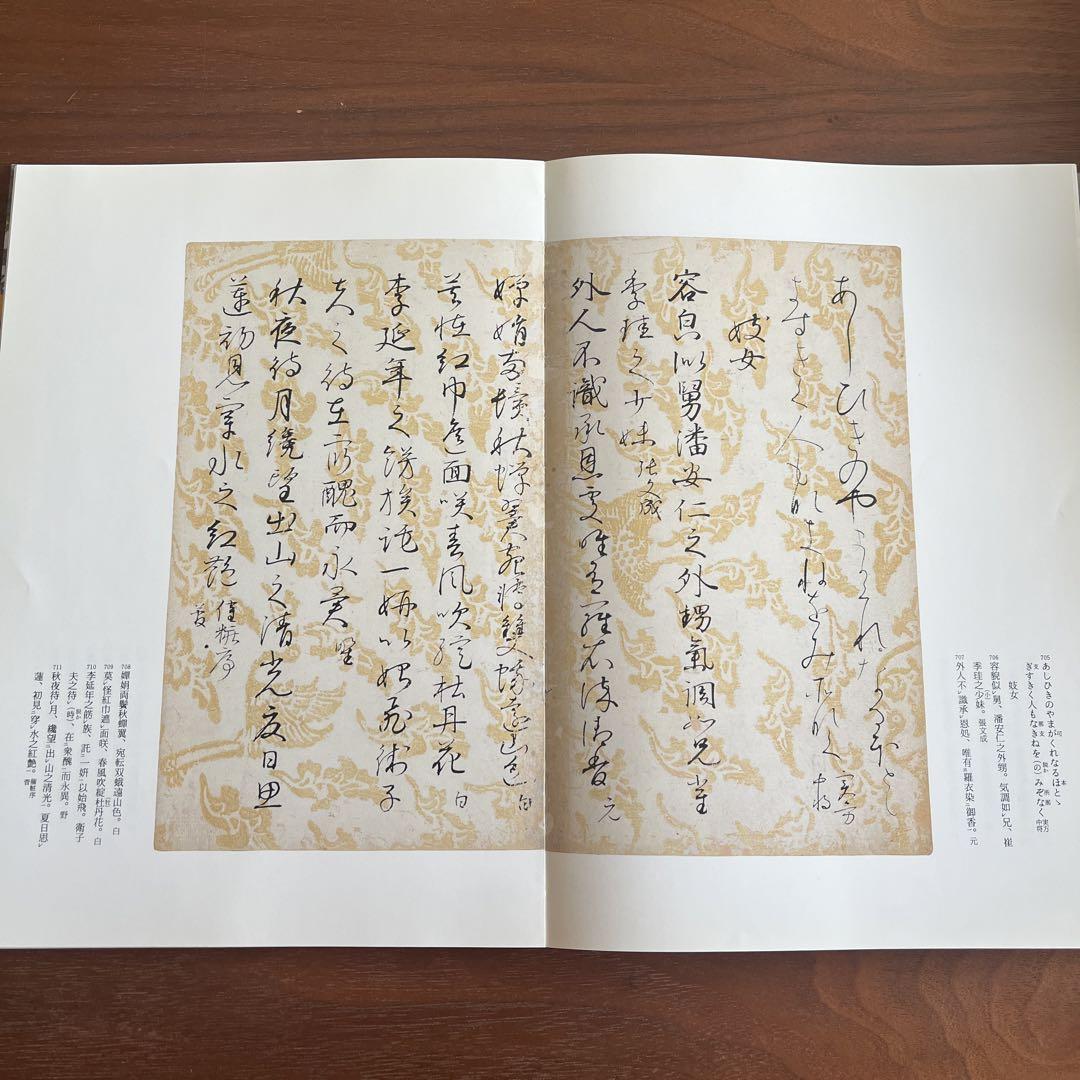 705 あしひきのやまがくれなるほとゝ
ぎすきく人もなきねを(の)みぞなく 実方中将
妓女
706 容貌似レ舅、潘安仁之外甥。気調如レ兄、崔
季珪之少(小)妹。張文成
707 外人不レ識承レ恩処、唯有二羅衣染一御香一。元
708 嬋娟両鬢秋蝉翼、宛転双蛾遠山色。白
709 莫レ怪紅巾遮レ面咲、春風吹綻杜(牡)丹花。白
710 李延年之餝レ族、託二一妍一以始飛。衛子
夫之待(時)、在二衆醜一而永異。野
711 秋夜待レ月、纔望二出レ山之清光一。夏日思レ
蓮、初見二穿レ水之紅艶一。菅
あしひきのやまかくれなるほとゝ
きすきく人もなきねをみそなく 実方中将
妓女
容皃似舅潘安仁之外甥氣調如兄崔
季珪之少妹 張文成
外人不識承恩處唯有羅衣染御香 元
嬋娟両鬢秋蝉翼宛轉雙蛾遠山色 白
莫恠紅巾遮面咲春風吹綻杜丹花 白
李延年之餝族託一妍以始飛衛子
夫之待在衆醜而永異 野
秋夜待月纔望出山之清光夏日思
蓮初見穿水之紅艶 菅